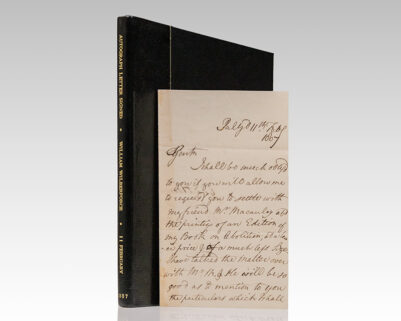 AUTOGRAPH LETTER SIGNED • WILLIAM WILBERFORCE • 11 FEBRUARY
1807
11th Feb
1807
Gentn
I shall be much oblig'd
to you if you will allow me
to request you to settle with
my friend Mr. Macaulay abt
the printing of an Edition of
my Book on Abolition,
in price & of a much less Size
I have talked the Matter over
with Mr. M. & He will be so
good as to mention to you
the particulars which I shall